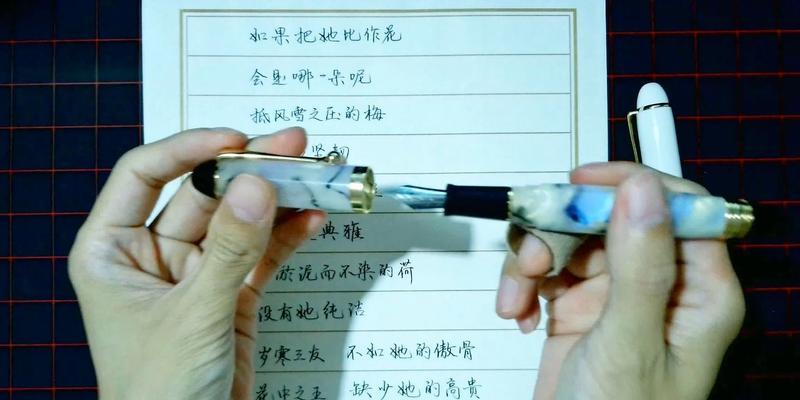 如果把她比作花
会是哪一朵呢
抵风雪之压的梅
坚韧
典雅
淤泥而不染的荷
没有她纯洁
岁寒三友 不如她的傲骨
花中之王 缺少她的高贵